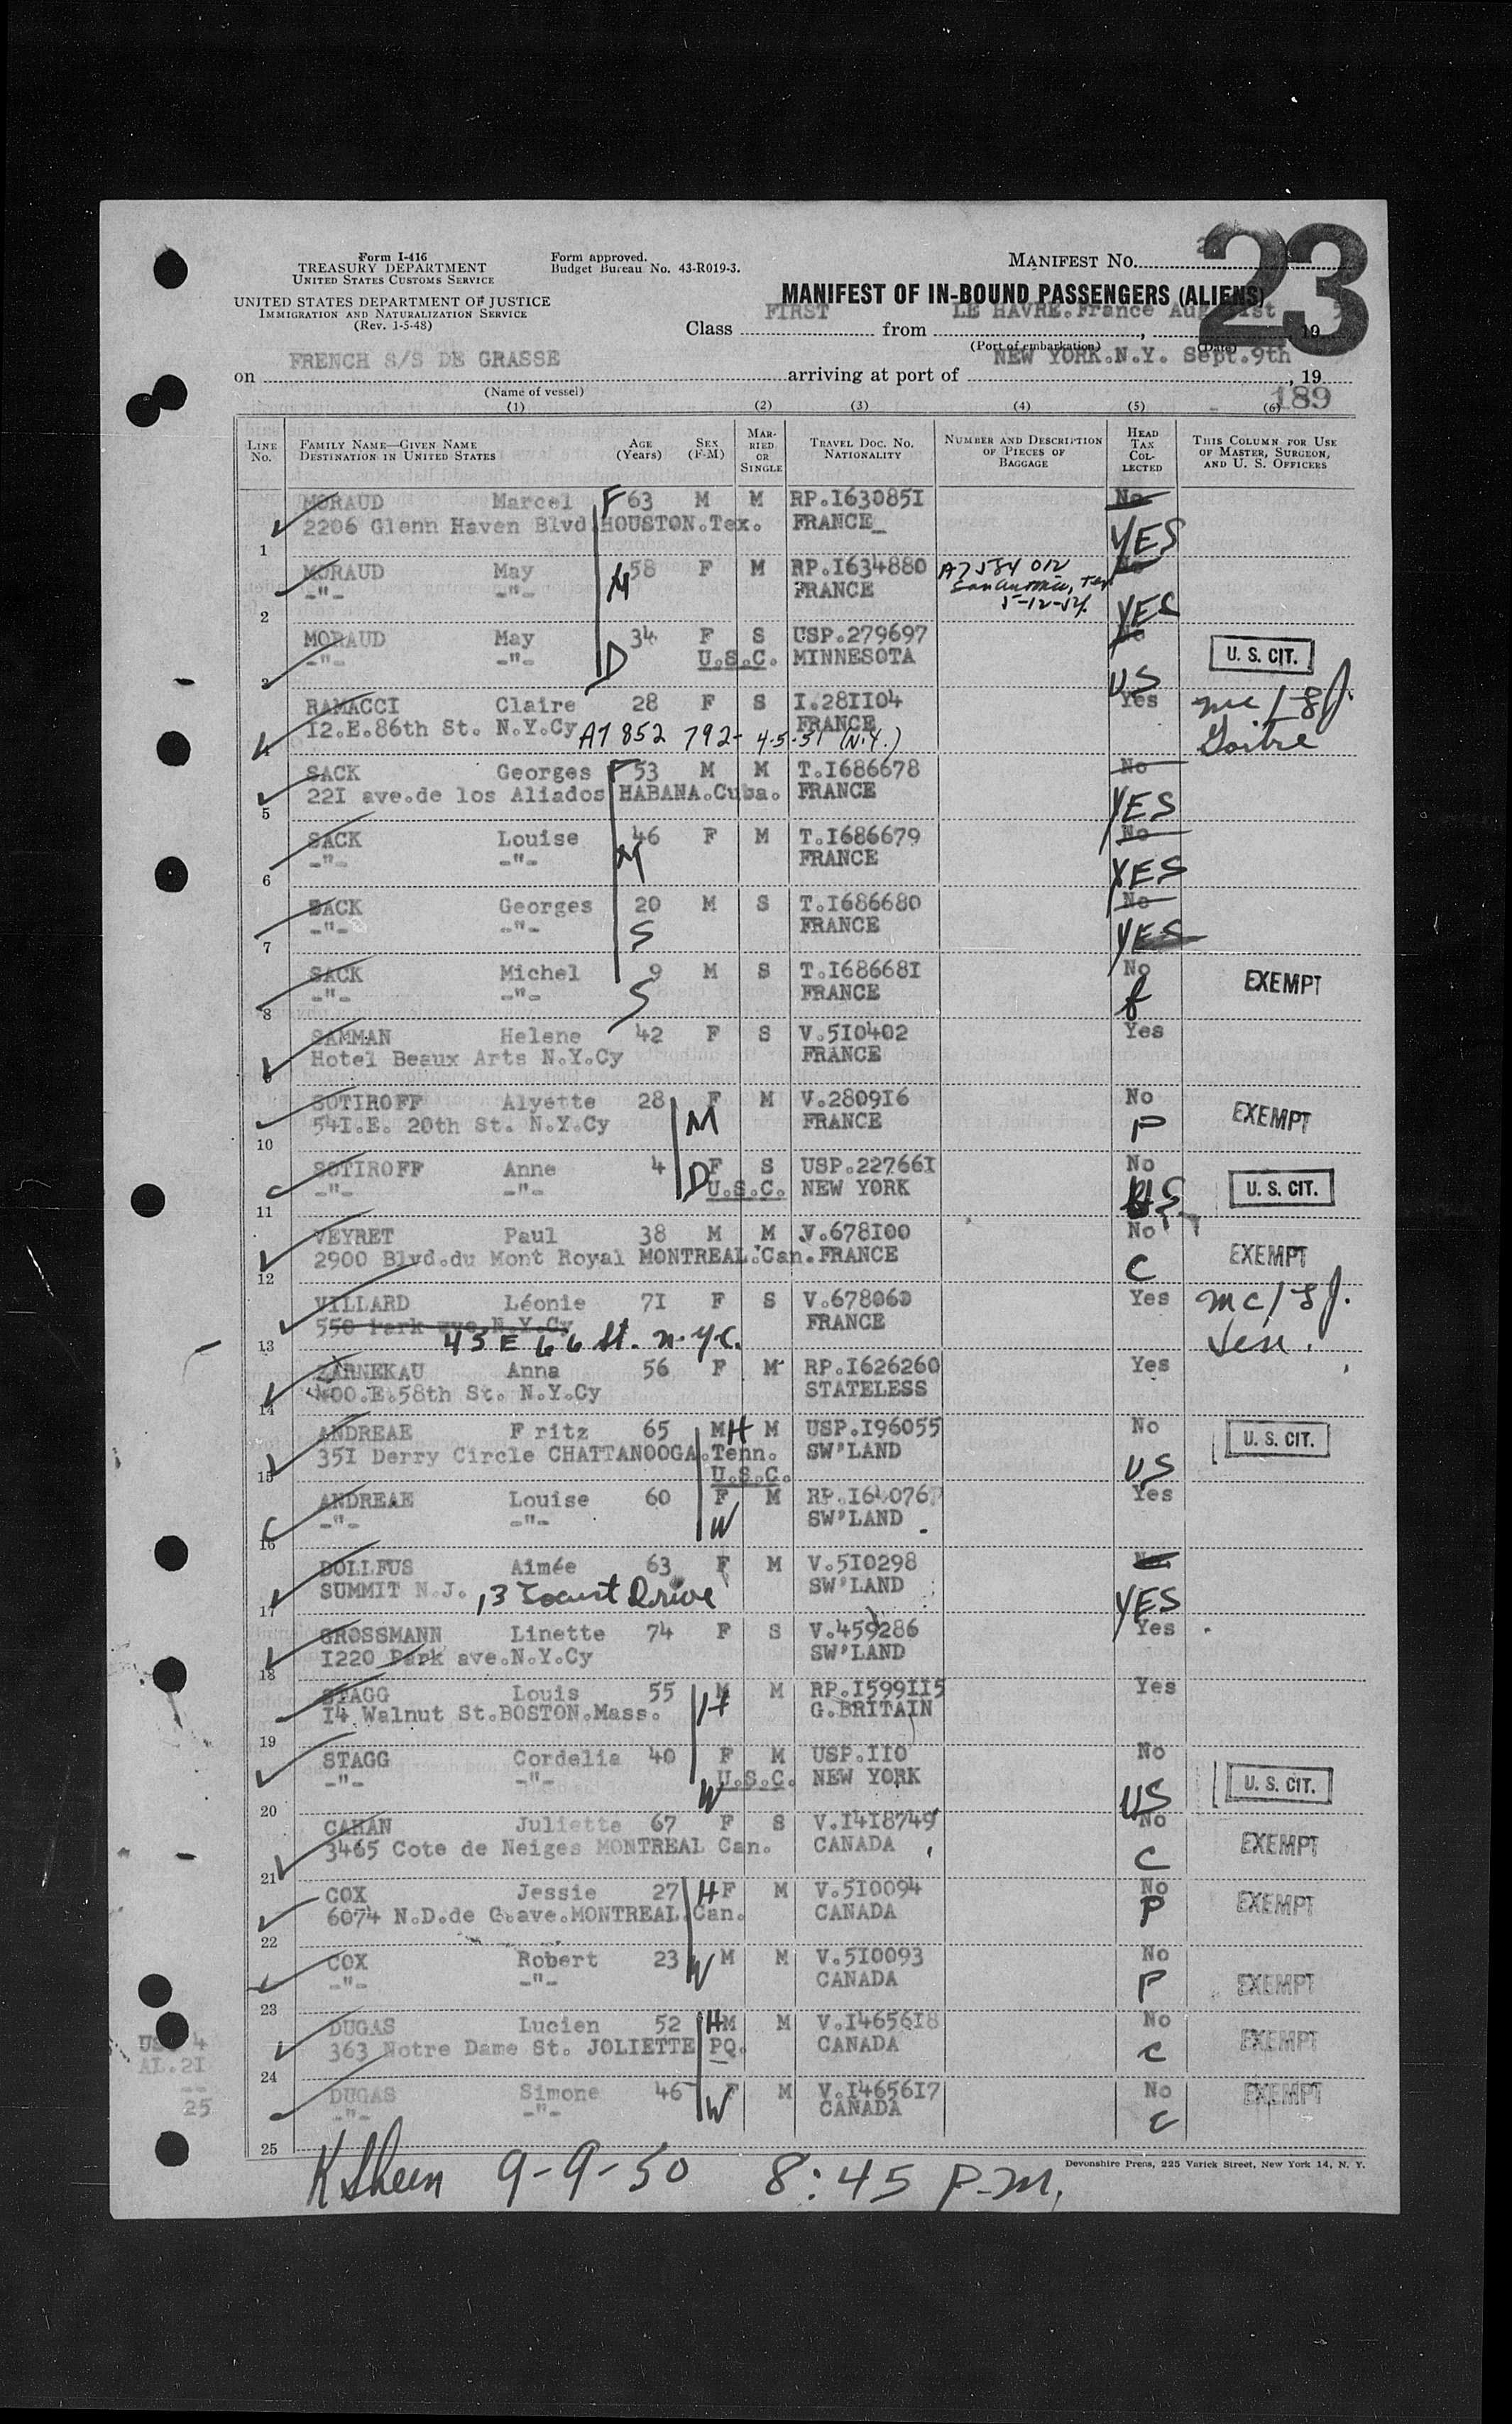 Form I-416
TREASURY DEPARTMENT
UNITED STATES CUSTOMS SERVICE
UNITED STATES DEPARTMENT OF JUSTICE
IMMIGRATION AND NATURALIZATION SERVICE
(Rev. 1-5-48)
Form approved.
Budget Bureau No. 43-R019-3.
MANIFEST NO.
23
MANIFEST OF IN-BOUND PASSENGERS (ALIENS)
Class FIRST from LE HAVRE.France , 19
(Port of embarkation) (Date)
on FRENCH S/S DE GRASSE arriving at port of NEW YORK.N.Y. Sept.9th , 19
(Name of vessel)
189
(1) (2) (3) (4) (5) (6)
LINE No. FAMILY NAME—GIVEN NAME DESTINATION IN UNITED STATES AGE (Years) SEX (F-M) MARRIED OR SINGLE TRAVEL DOC. No. NATIONALITY NUMBER AND DESCRIPTION OF PIECES OF BAGGAGE HEAD TAX COLLECTED THIS COLUMN FOR USE OF MASTER, SURGEON, AND U. S. OFFICERS
MORAUD Marcel F 63 M M RP.I63085I No
1 2206 Glenn Haven Blvd HOUSTON.Tex. FRANCE YES
MORAUD May 58 F M RP.I634880 A7584012 No
2 -"- -"- M FRANCE San Antonio, Tex 5-12-54 YES
MORAUD May 34 F S USP.279697 No
3 -"- -"- D U.S.C. MINNESOTA US U. S. CIT.
RAMACCI Claire 28 F S I.28II04 Yes
4 I2.E.86th St. N.Y.Cy A7 852 792- 4-5-51 (N.Y.) FRANCE Goitre
SACK Georges F 53 M M T.I686678 No
5 22I ave.de los Aliados HABANA.Cuba. FRANCE YES
SACK Louise 46 F M T.I686679 No
6 -"- -"- M FRANCE YES
SACK Georges 20 M S T.I686680 No
7 -"- -"- S FRANCE YES
SACK Michel 9 M S T.I68668I No EXEMPT
8 -"- -"- S FRANCE
SAMMAN Helene 42 F S V.5I0402 Yes
9 Hotel Beaux Arts N.Y.Cy FRANCE
SOTIROFF Alyette 28 F M V.2809I6 No EXEMPT
10 54I.E. 20th St. N.Y.Cy M FRANCE P
SOTIROFF Anne 4 F S USP.22766I No
11 -"- -"- D U.S.C. NEW YORK U. S. CIT.
VEYRET Paul 38 M M V.678I00 No EXEMPT
12 2900 Blvd.du Mont Royal MONTREAL.Can. FRANCE C
VILLARD Léonie 7I F S V.678060 Yes
13 550 Park ave.N.Y.Cy FRANCE Sen.
43 E 66 St. n.y.c.
ZARNEKAU Anna 56 F M RP.I626260 Yes
14 400.E.58th St. N.Y.Cy STATELESS
ANDREAE Fritz 65 M H M USP.I96055 No U. S. CIT.
15 35I Derry Circle CHATTANOOGA.Tenn. SW'LAND US
U.S.C.
ANDREAE Louise 60 F M Yes
16 -"- -"- W SW'LAND
DOLLFUS Aimée 63 F M V.5I0298
17 SUMMIT N.J. 13 Locust Drive SW'LAND YES
GROSSMANN Linette 74 F S V.459286 Yes
18 I220 Park ave.N.Y.Cy SW'LAND
STAGG Louis 55 M M RP.I599II5 Yes
19 I4 Walnut St.BOSTON.Mass. H G.BRITAIN
STAGG Cordelia 40 F M USP.II0 No
20 -"- -"- W U.S.C. NEW YORK US U. S. CIT.
CAHAN Juliette 67 F S V.I4I8749 No EXEMPT
21 3465 Cote de Neiges MONTREAL Can. CANADA C
COX Jessie 27 H F M V.5I0094 No EXEMPT
22 6074 N.D.de G.ave.MONTREAL.Can. CANADA P
COX Robert 23 W M M V.5I0093 No EXEMPT
23 -"- -"- CANADA P
DUGAS Lucien 52 H M M V.I4656I8 No EXEMPT
24 363 Notre Dame St. JOLIETTE PQ. CANADA C
DUGAS Simone 46 F M V.I4656I7 No EXEMPT
25 -"- -"- W CANADA C
AL.2I
--
25
Devonshire Press, 225 Varick Street, New York 14, N. Y.
K Sheen 9-9-50 8:45 P.M.